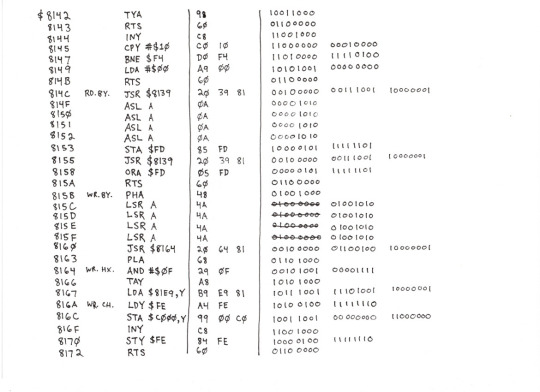 $8142 TYA 98 10011000
8143 RTS 6Ø 01100000
8144 INY C8 11001000
8145 CPY #$1Ø CØ 1Ø 11000000 00010000
8147 BNE $F4 DØ F4 11010000 11110100
8149 LDA #$ØØ A9 ØØ 10101001 00000000
814B RTS 6Ø 01100000
814C RD.BY. JSR $8139 2Ø 39 81 00100000 00111001 10000001
814F ASL A ØA 00001010
815Ø ASL A ØA 00001010
8151 ASL A ØA 00001010
8152 ASL A ØA 00001010
8153 STA $FD 85 FD 10000101 11111101
8155 JSR $8139 2Ø 39 81 00100000 00111001 10000001
8158 ORA $FD Ø5 FD 00000101 11111101
815A RTS 6Ø 01100000
815B WR.BY. PHA 48 01001000
815C LSR A 4A 01001010
815D LSR A 4A 01001010
815E LSR A 4A 01001010
815F LSR A 4A 01001010
816Ø JSR $8164 2Ø 64 81 00100000 01100100 10000001
8163 PLA 68 01101000
8164 WR.HX. AND #$ØF 29 ØF 00101001 00001111
8166 TAY A8 10101000
8167 LDA $81E9,Y B9 E9 81 10111001 11101001 10000001
816A WR.CH. LDY $FE A4 FE 10100100 11111110
816C STA $CØØØ,Y 99 ØØ CØ 10011001 00000000 11000000
816F INY C8 11001000
817Ø STY $FE 84 FE 10000100 11111110
8172 RTS 6Ø 01100000